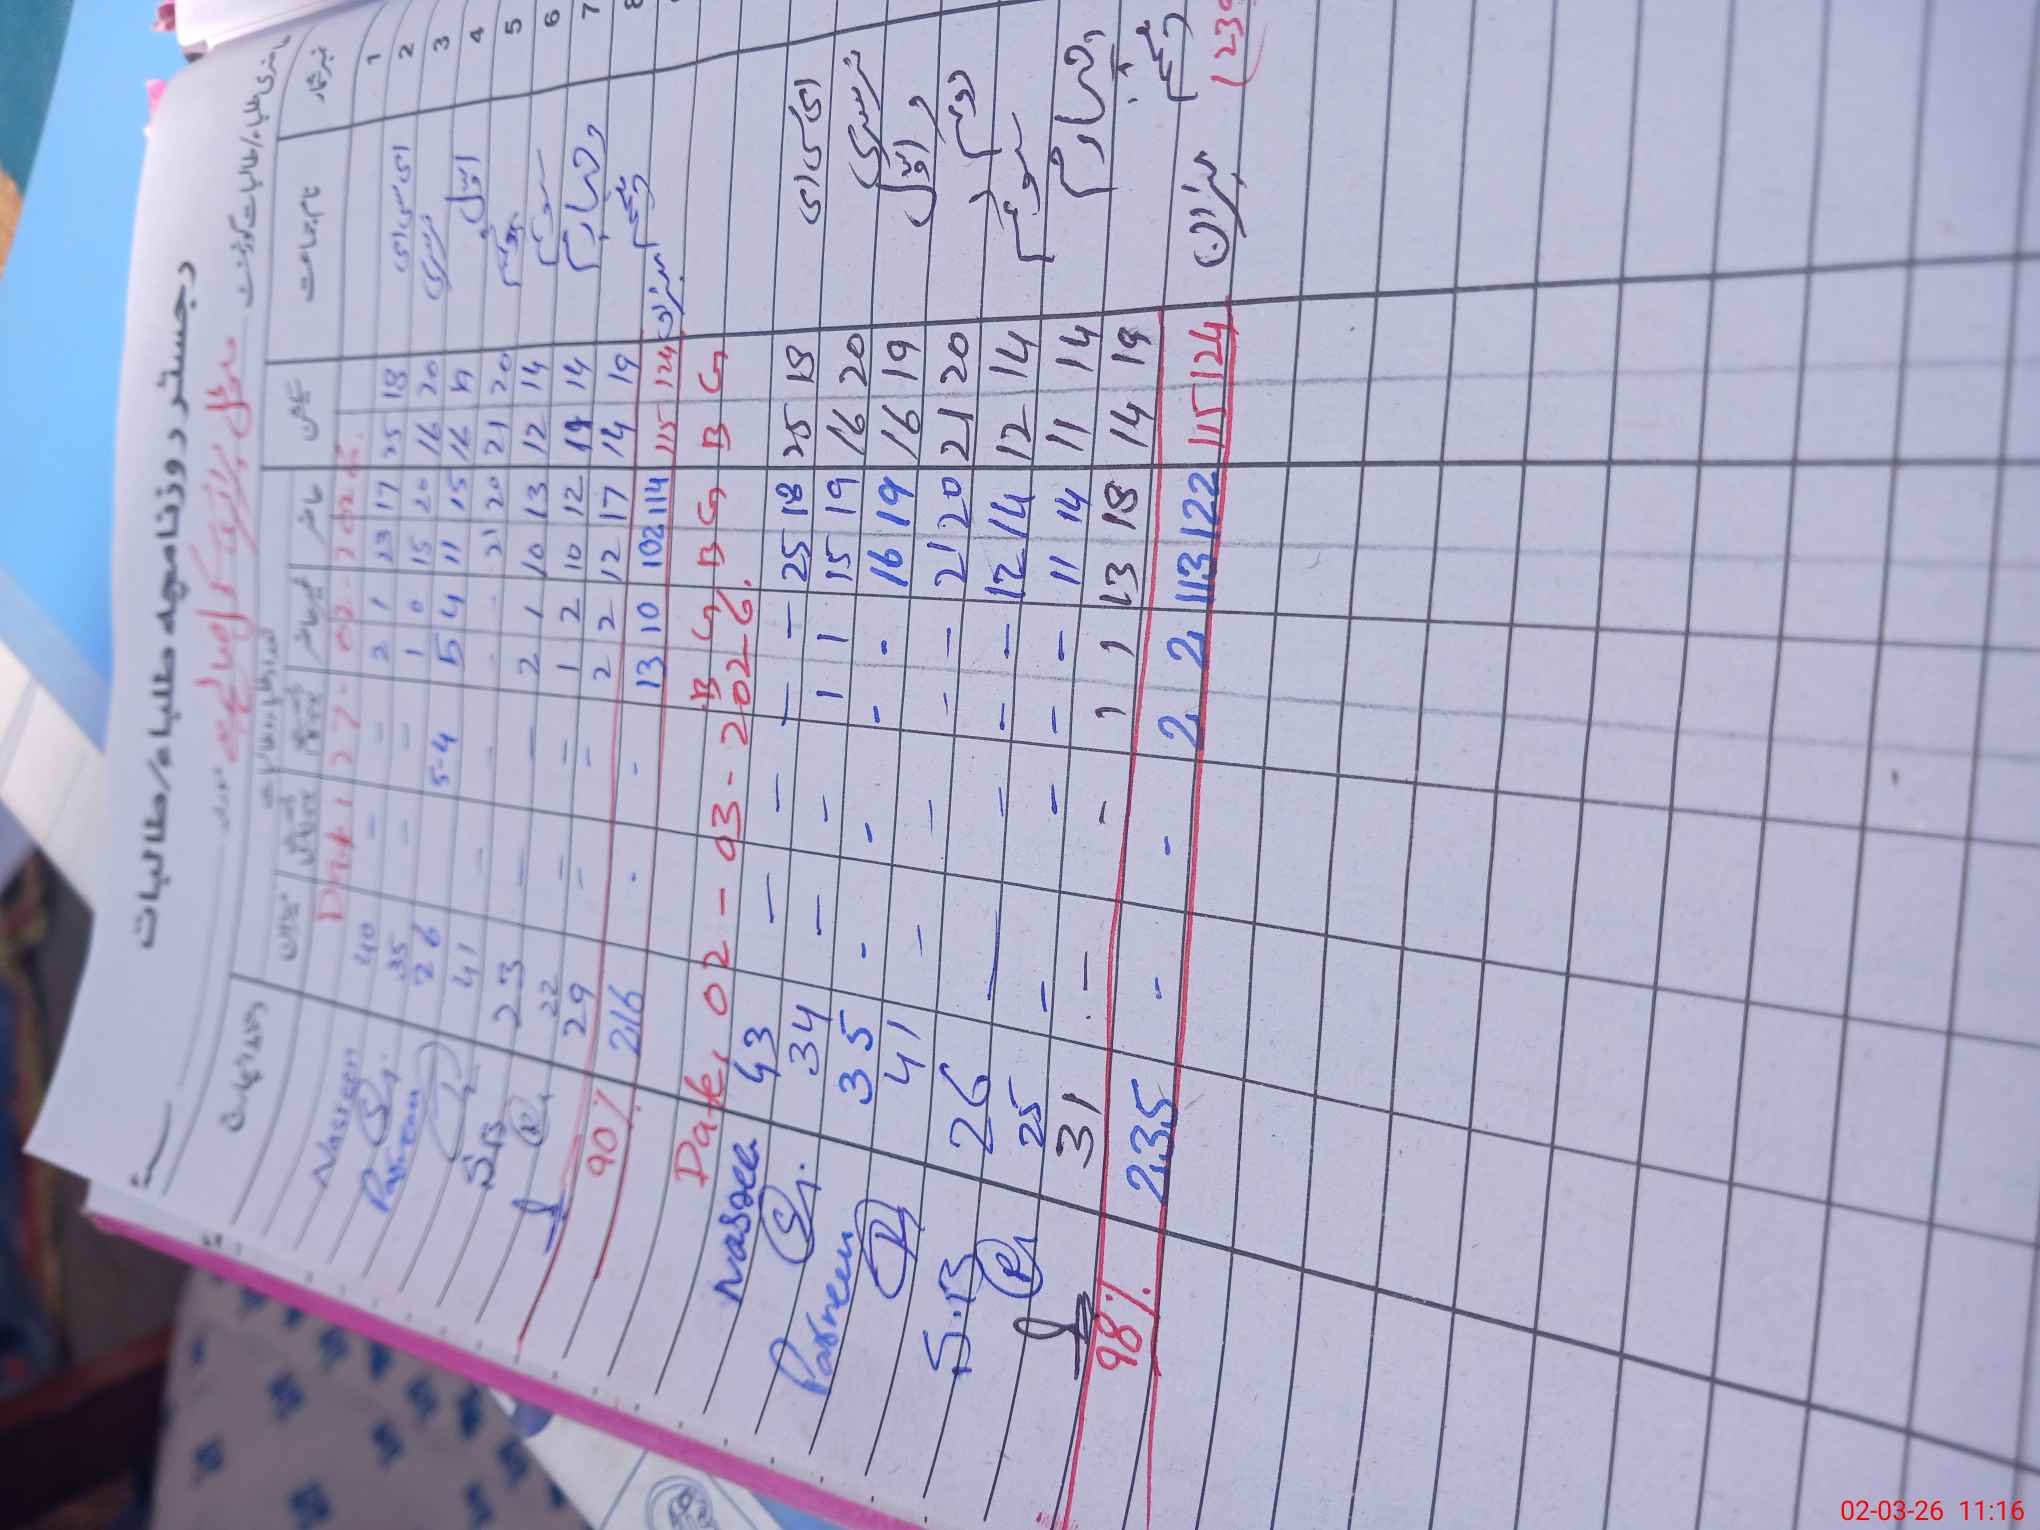 رجسٹر روزنامچہ طلباء/طالبات
حاضری طلباء/طالبات گورنمنٹ ماڈل پرائمری سکول
نمبر شمار نام جماعت حاضر غیر حاضر میزان
Date 27-02-2026.
1 ای سی ای 25 18 23 17 2 1 - - 40 Nasreen
2 نرسری 16 20 15 20 1 0 - - 35
3 اوّل 16 19 11 15 5 4 5-4 26 Parveen
4 دوئم 21 20 21 20 - - - - 41
5 سوئم 12 14 10 13 2 1 - - 23 S.B
6 چہارم 11 14 10 12 1 2 - - 22
7 پنجم 14 19 12 17 2 2 - - 29
8 میزان 115 124 102 114 13 10 - - 216 90%
B G B G B G
Date, 02-03-2026.
ای سی ای 25 18 25 18 - - - - 43 Nasreen
نرسری 16 20 15 19 1 1 - - 34
اوّل 16 19 16 19 - - - - 35 Parveen
دوئم 21 20 21 20 - - - - 41
سوئم 12 14 12 14 - - - - 26 S.B
چہارم 11 14 11 14 - - - - 25
پنجم 14 19 13 18 1 1 - - 31
میزان 115 124 113 122 2 2 - - 235 98%
02-03-26 11:16